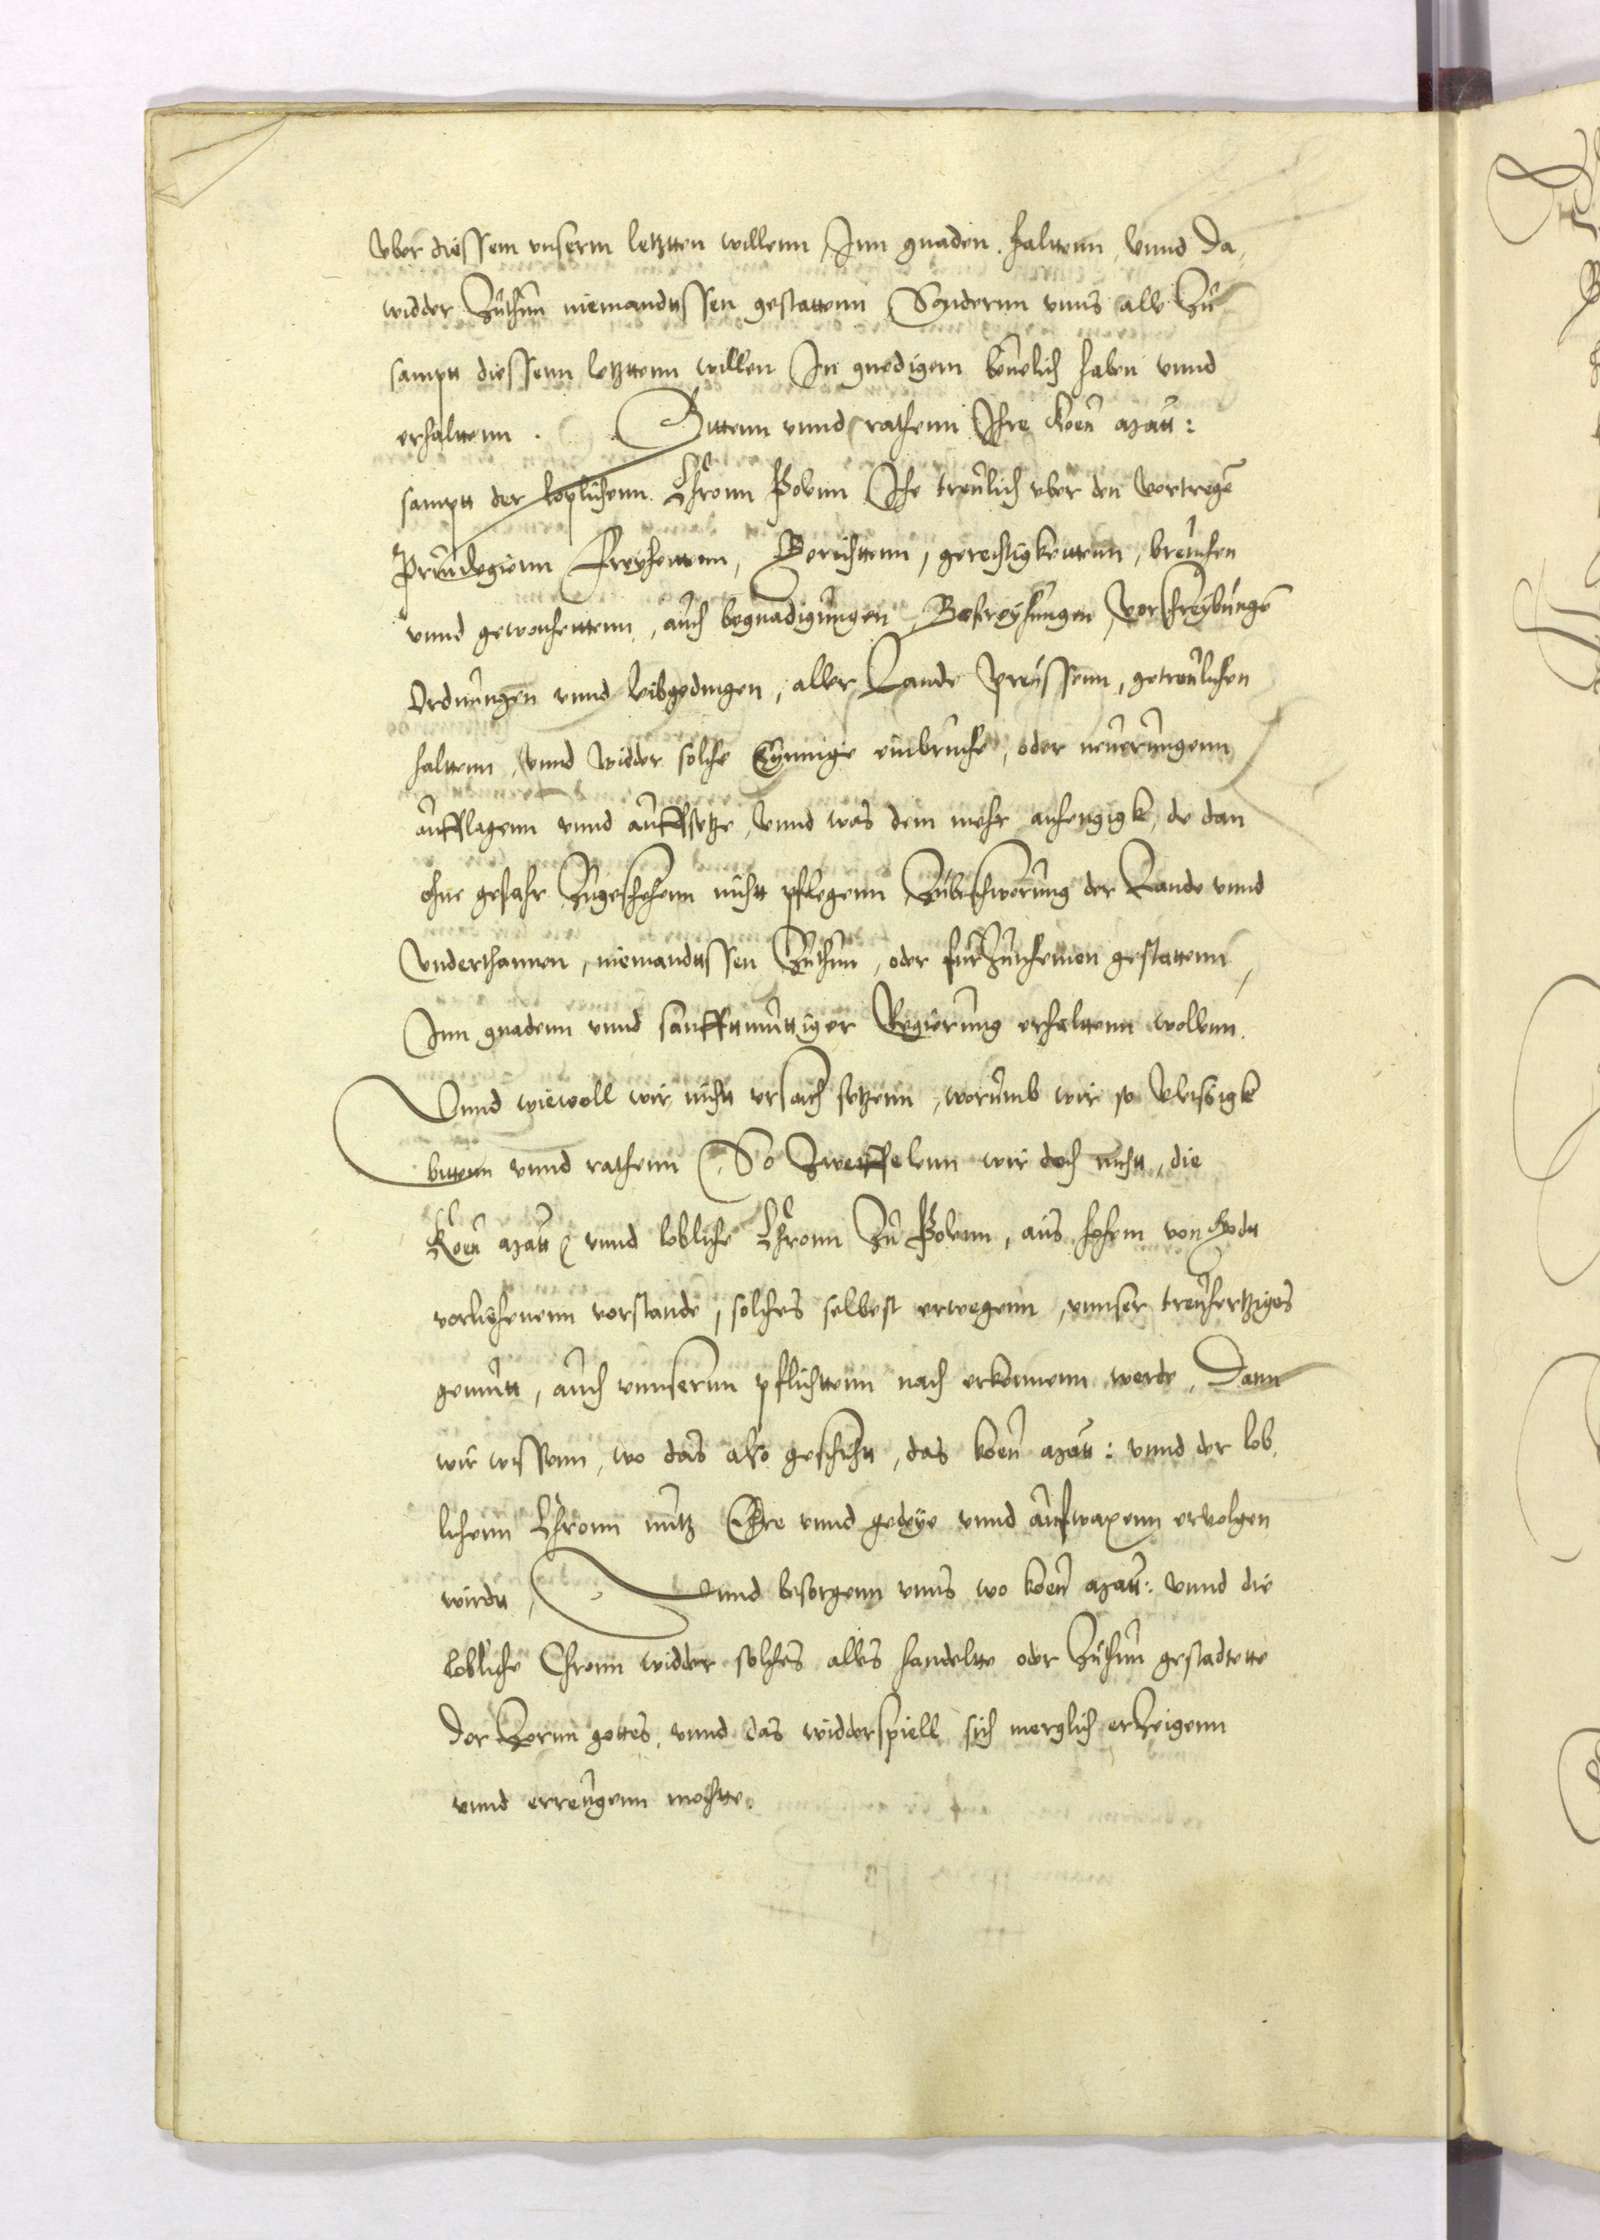 vber diessem vnserm letztten willenn Inn gnaden halttenn, vnnd da,
widder Zuthun niemandtssen gestattenn Sondernn vnns alle Zu
sampt diessenn letzttenn willen In gnedigem bevelich haben vnnd
erhalttenn. Bittenn vnnd rathenn Ihre Koen Matt:
sampt der loplichenn Chronn Polenn Ihe treulich vber den vertrege
Priuilegienn Freyheittenn, Gerichttenn, gerechtigkeittenn, breuchen
vnnd gewonheittenn, auch begnadigungen, Befreyhungen, Vorschreybunge
Ordnungen vnnd leibgedingen, aller Lande Preussenn, getreulichen
halttenn, vnnd widder solche Eynnige einbruche, oder neuerungenn
aufflagenn vnnd auffsetze, vnnd was dem mehr anhengigk, de dan
ohne gefahr Zugeschehenn nicht pflegenn Zubeschwerung der Lande vnnd
Vnderthannen, niemandtssen Zuthun, oder furZunhemen gestattenn,
Inn gnadenn vnnd sanfftmuttiger Regierung erhalttenn wollenn.
Vnnd wiewoll wir nicht ursach setzenn, worumb wir so vleissigk
bittenn vnnd rathenn So Zweiffelnn wir doch nicht, die
Koen Matt vnnd lobliche Chronn Zu Polenn, aus hohem von Godt
vorliehenenn vorstande, solches selbest erwegenn, vnnser treuhertziges
gemutt, auch vnnserenn pflichttenn nach erkennenn werde, Dann
wir wissenn, wo das also geschicht, das koen Matt: vnnd der lob,
lichenn Chronn nutz Ehre vnnd gedeye vnnd aufwaxenn ervolgen
wirdt, Vnnd besorgenn vnns wo koen Matt: vnnd die
lobliche Chronn widder solches alles handeltte oder Zuthun gestadtette
der Zornn gottes, vnnd das widderspiell sich merglich erZeigenn
vnnd erreugenn mochtte.